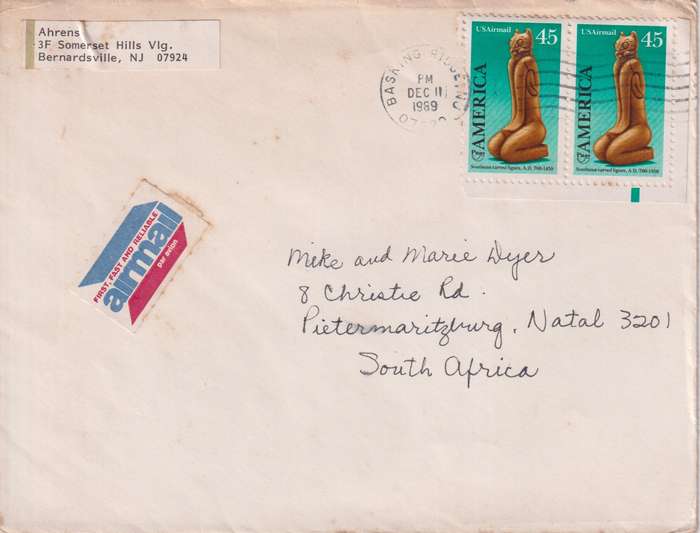 Ahrens
3F Somerset Hills Vlg.
Bernardsville, NJ 07924
BASKING RIDGE, NJ
PM
DEC 11
1989
USAirmail 45
AMERICA
Southeast carved figure, A.D. 700-1450
USAirmail 45
AMERICA
Southeast carved figure, A.D. 700-1450
FIRST, FAST AND RELIABLE
airmail
par avion
Mike and Marie Dyer
8 Christie Rd.
Pietermaritzburg, Natal 3201
South Africa